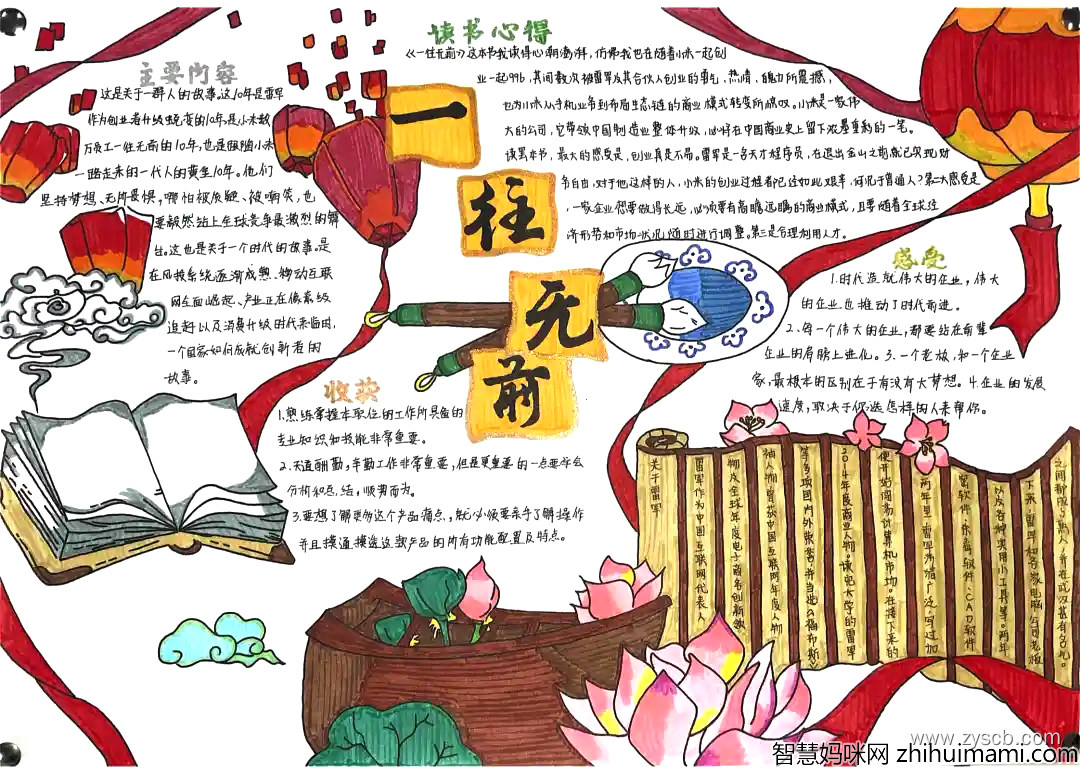 读书心得
《一往无前》这本书我读得心潮澎湃，仿佛我也在随着小米一起创
业一起996，其间数次被雷军及其合伙人创业的勇气，热情，魄力所震撼，
也为小米从手机业务到布局生态链的商业模式转变所惊叹。小米是一家伟
大的公司，它带领中国制造业整体升级，必将在中国商业史上留下浓墨重彩的一笔。
读罢本书，最大的感受是，创业真是不易。雷军是一名天才程序员，在退出金山之前就已实现财
务自由，对于他这样的人，小米的创业过程都已经如此艰辛，何况于普通人？第二大感受是
，一家企业想要做得长远，必须要有高瞻远瞩的商业模式，且要随着全球经
济形势和市场状况随时进行调整。第三是合理利用人才。
主要内容
这是关于一群人的故事。这10年是雷军
作为创业者升级蜕变的10年是小米数
万员工一往无前的10年，也是跟随小米
一路走来的一代人的黄金10年。他们
坚持梦想、无所畏惧，哪怕被质疑、被嘲笑，也
要毅然站上全球竞争最激烈的舞
台。这也是关于一个时代的故事。是
在风投系统逐渐成熟、移动互联
网全面崛起、产业正在像素级
追赶以及消费升级时代来临时，
一个国家如何成就创新者的
故事。
一
往
无
前
感受
1.时代造就伟大的企业，伟大
的企业也推动了时代前进。
2、每一个伟大的企业，都要站在前辈
企业的肩膀上进化。3.一个老板，和一个企业
家，最根本的区别在于有没有大梦想。4.企业的发展
速度，取决于你选怎样的人来帮你。
收获
1.熟练掌握本职位的工作所具备的
专业知识和技能非常重要。
2.天道酬勤，辛勤工作非常重要，但是更重要的一点要学会
分析和总结，顺势而为。
3.要想了解更多这个产品痛点，就必须要亲手了解操作
并且摸通摸透这款产品的所有功能配置及特点。
关于雷军
雷军作为中国互联网代表人
物及全球年度电子商务创新领
袖人物，曾获中国互联网年度人物
等多项国内外荣誉，并当选《福布斯》
2014年度商业人物。读完大学的雷军
便开始闯荡计算机市场。在接下来的
两年里，雷军涉猎广泛，写过加
密软件、杀毒软件、CAD软件
以及各种实用小工具等。两年
下来，雷军和各家电脑公司老板
之间都成了熟人，并在武汉甚有名气。
www.zyscb.com
智慧妈咪网 zhihuimami.com